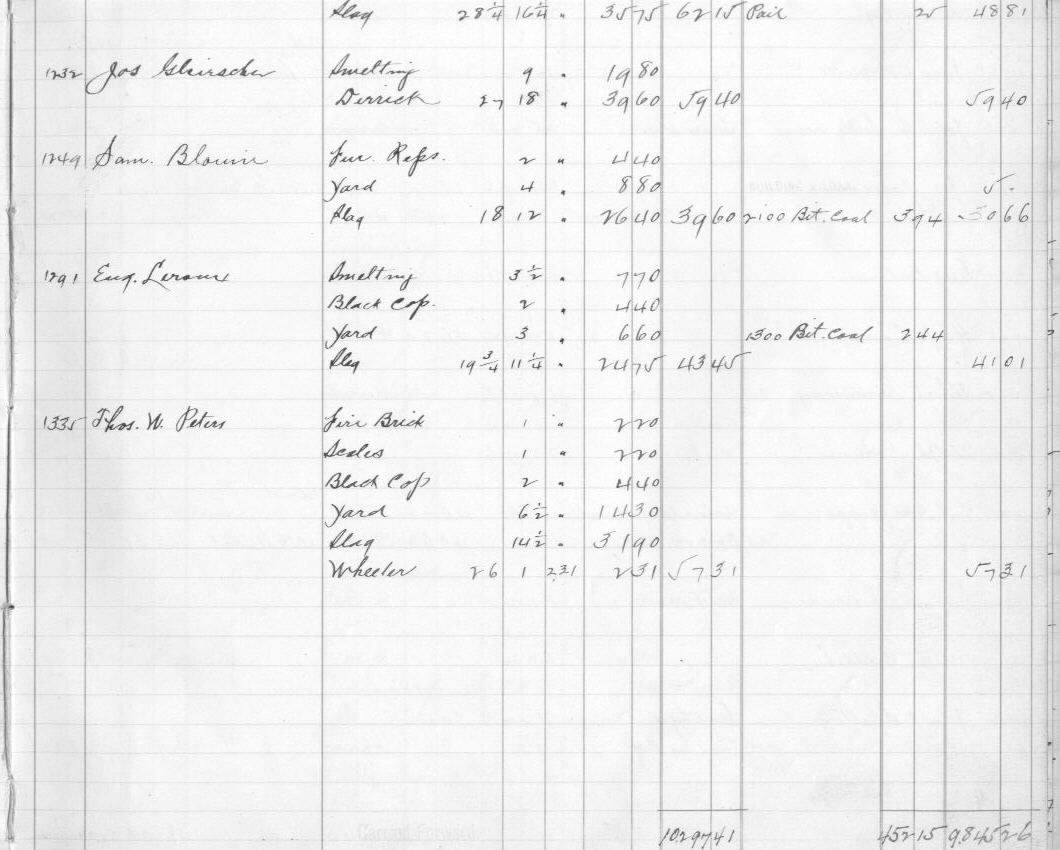 Slag 28 1/4 16 1/4 " 3575 6215 Paid 25 4881
1232 Jos Smelting 9 " 1980
Derrick 27 18 " 3960 5940 5940
1249 Sam. Blouin Fur. Reps. 2 " 440
Yard 4 " 880 5 -
Slag 18 12 " 2640 3960 2100 Bit. Coal 394 3066
1291 Eug. Leroux Smelting 3 1/2 " 770
Black Cop. 2 " 440
Yard 3 " 660 1300 Bit. Coal 244
Slag 19 3/4 11 1/4 " 2475 4345 4101
1335 Thos. W. Peters Fire Brick 1 " 220
Scales 1 " 220
Black Cop 2 " 440
Yard 6 1/2 " 1430
Slag 14 1/2 " 3190
Wheeler 26 1 231 231 5731 5731
Carried Forward
1029741 45215 984526